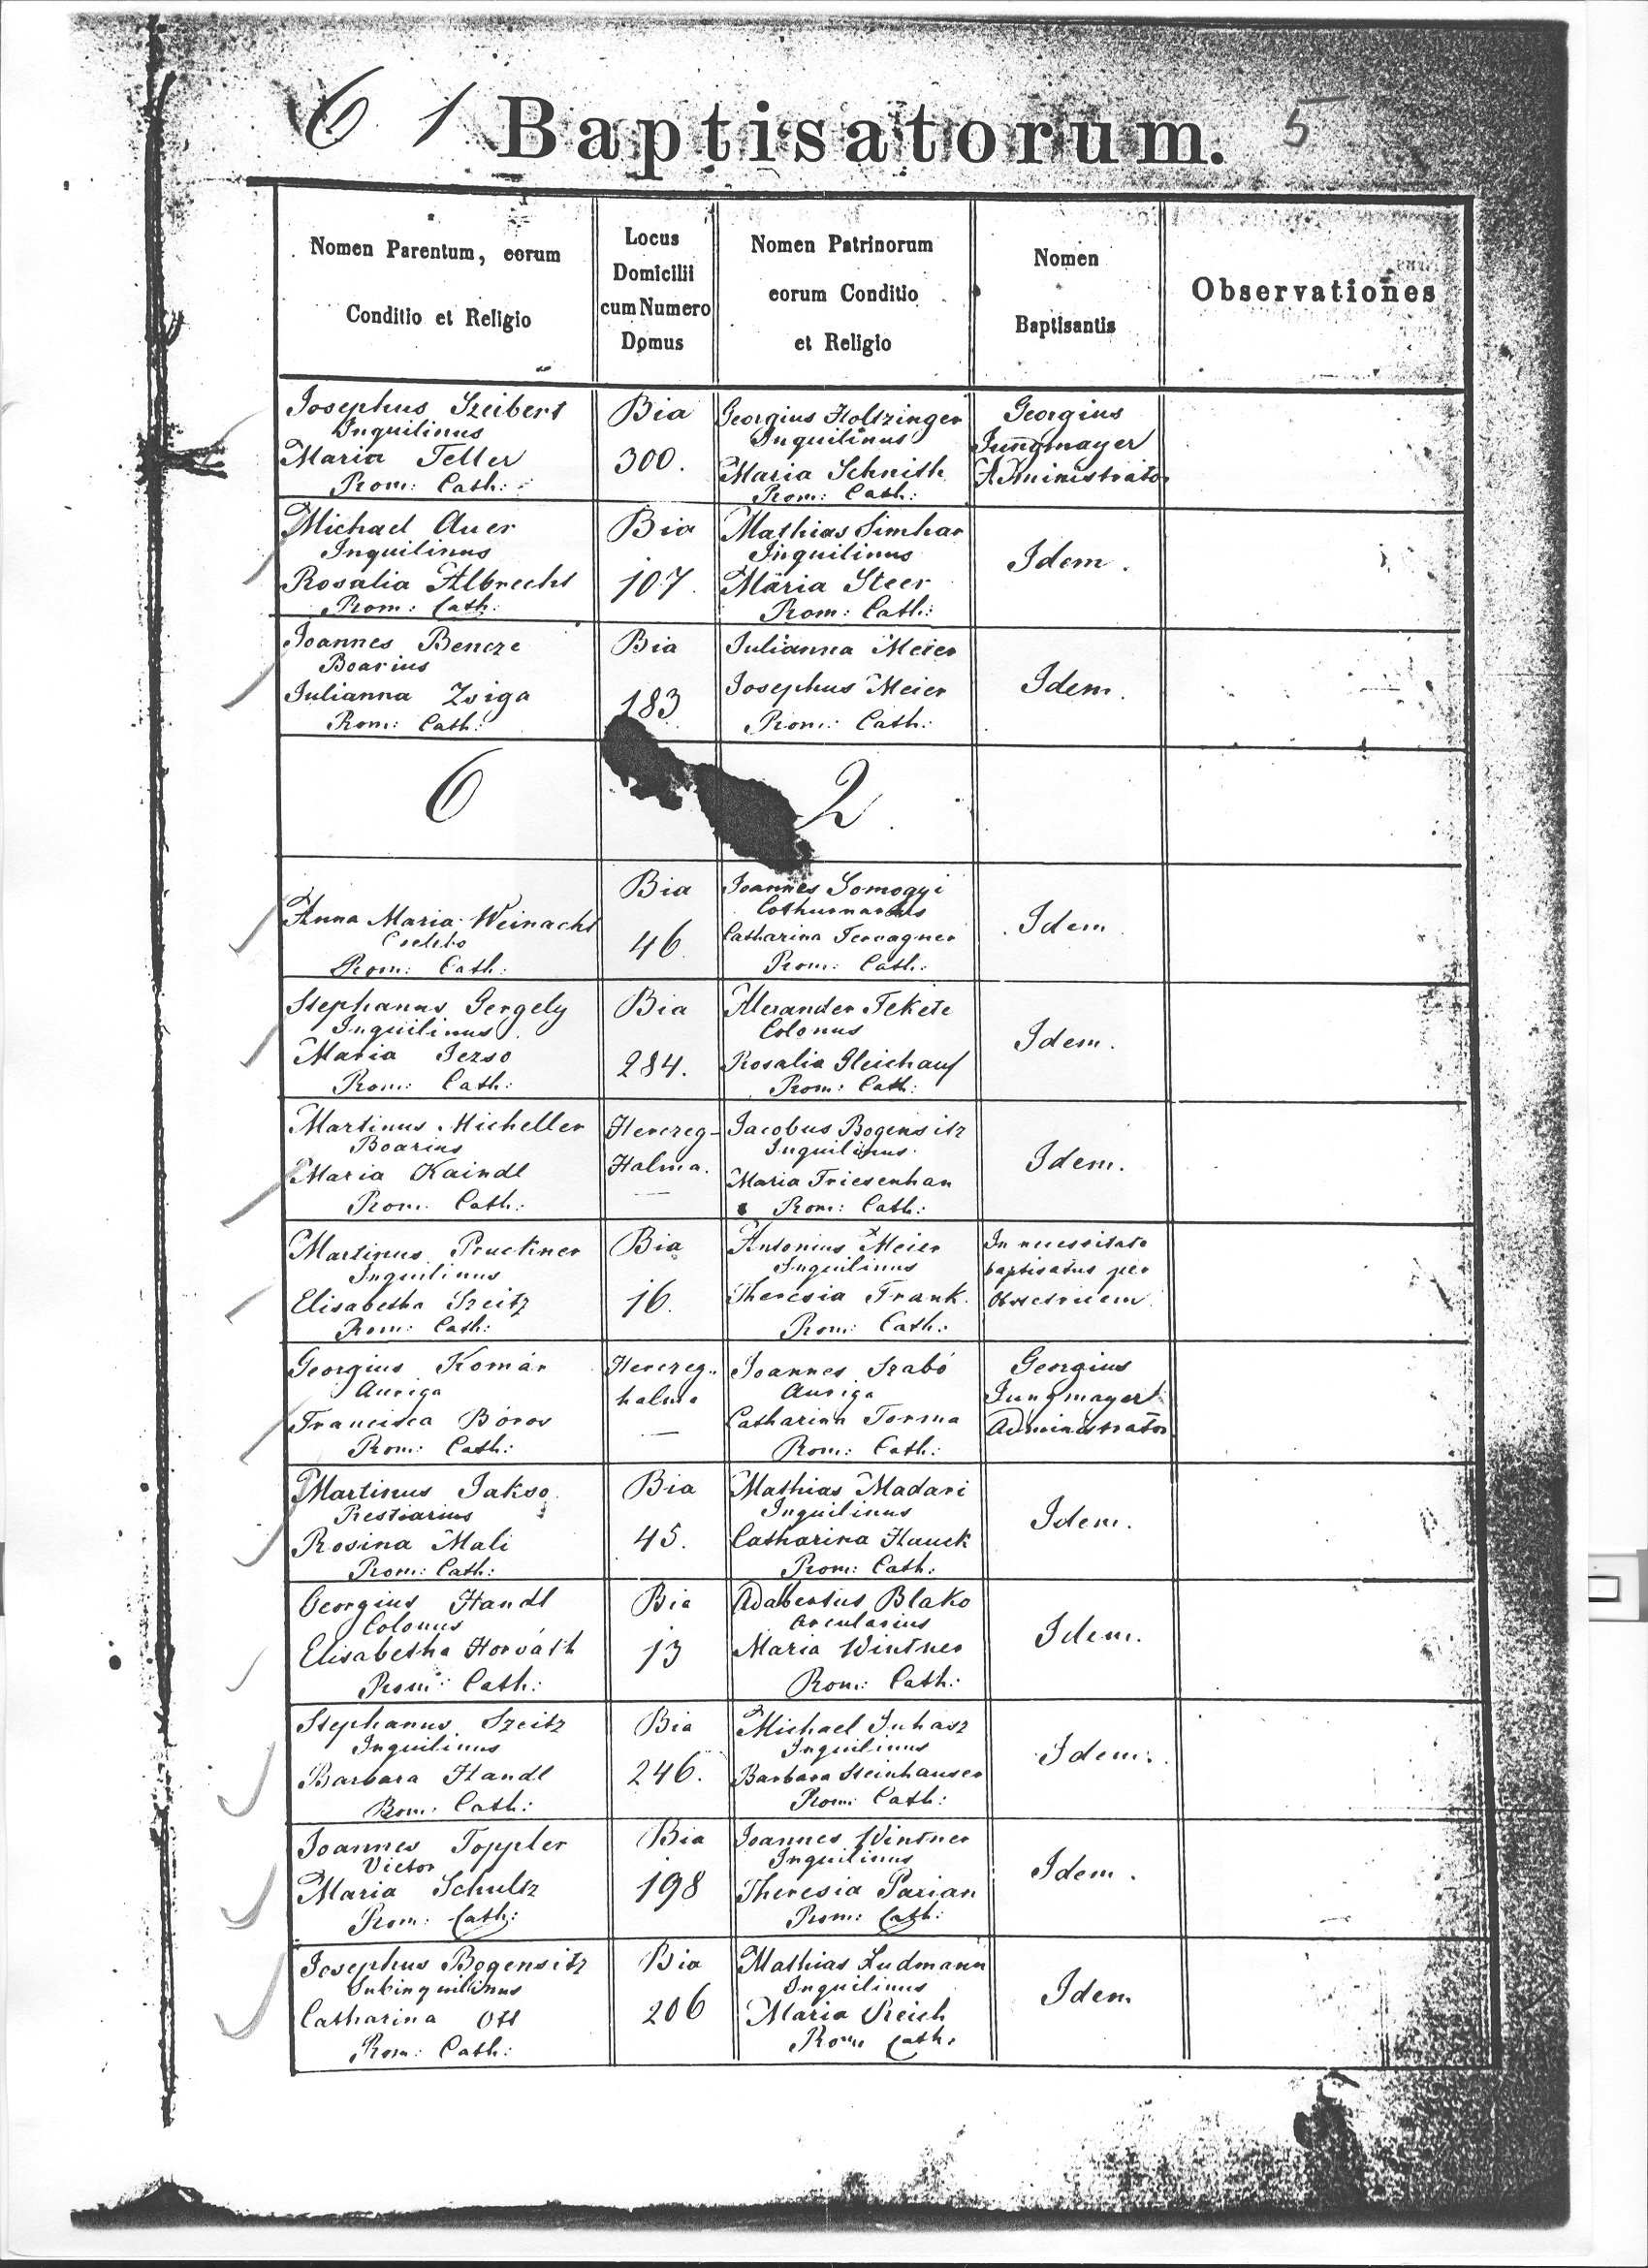 6 1 Baptisatorum. 5
Nomen Parentum, eorum
Conditio et Religio
Locus
Domicilii
cum Numero
Domus
Nomen Patrinorum
eorum Conditio
et Religio
Nomen
Baptisantis
Observationes
Josephus Szeibert
Inquilinus
Maria Teller
Rom: Cath:
Bia
300.
Georgius Holtzinger
Inquilinus
Maria Schnith
Rom: Cath:
Georgius
Jungmayer
Administrator
Michael Auer
Inquilinus
Rosalia Albrecht
Rom: Cath:
Bia
107.
Mathias Simhar
Inquilinus
Maria Steer
Rom: Cath:
Idem.
Joannes Bencze
Boarius
Julianna Zsiga
Rom: Cath:
Bia
183
Julianna Meier
Josephus Meier
Rom: Cath:
Idem.
6
2
Anna Maria Weinacht
Rom: Cath:
Bia
46
Joannes Somogyi
Cothurnarius
Catharina
Rom: Cath:
Idem
Stephanus Gergely
Inquilinus
Maria Jerso
Rom: Cath:
Bia
284.
Alexander Fekete
Colonus
Rosalia Gleichauf
Rom: Cath:
Idem.
Martinus Micheller
Boarius
Maria Kaindl
Rom: Cath:
Herczeg-
Halma.
Jacobus Bogensitz
Inquilinus
Maria Friesenhan
Rom: Cath:
Idem.
Martinus Pruckner
Inquilinus
Elisabetha Szeitz
Rom: Cath:
Bia
16.
Antonius Meier
Inquilinus
Theresia Frank.
Rom: Cath:
In necessitate
baptisatus per
obstetricem
Georgius Komár
Auriga
Francisca Boros
Rom: Cath:
Herczeg-
halma
Joannes Szabó
Auriga
Catharina Torma
Rom: Cath:
Georgius
Jungmayer
Administrator
Martinus Jakso
Restiarius
Rosina Mali
Rom: Cath:
Bia
45.
Mathias Madari
Inquilinus
Catharina Hauck
Rom: Cath:
Idem.
Georgius Handl
Colonus
Elisabetha Horváth
Rom: Cath:
Bia
13
Adabertus Blako
Arcularius
Maria Wintner
Rom: Cath:
Idem.
Stephanus Szeitz
Inquilinus
Barbara Handl
Rom: Cath:
Bia
246.
Michael Juhasz
Inquilinus
Barbara Steinhauser
Rom: Cath:
Idem.
Joannes Toppler
Victor
Maria Schultz
Rom: Cath:
Bia
198
Joannes Wintner
Inquilinus
Theresia Parian
Rom: Cath:
Idem.
Josephus Bogensitz
Subinquilinus
Catharina Ott
Rom: Cath:
Bia
206
Mathias Ludmann
Inquilinus
Maria Reich
Rom: Cath:
Idem